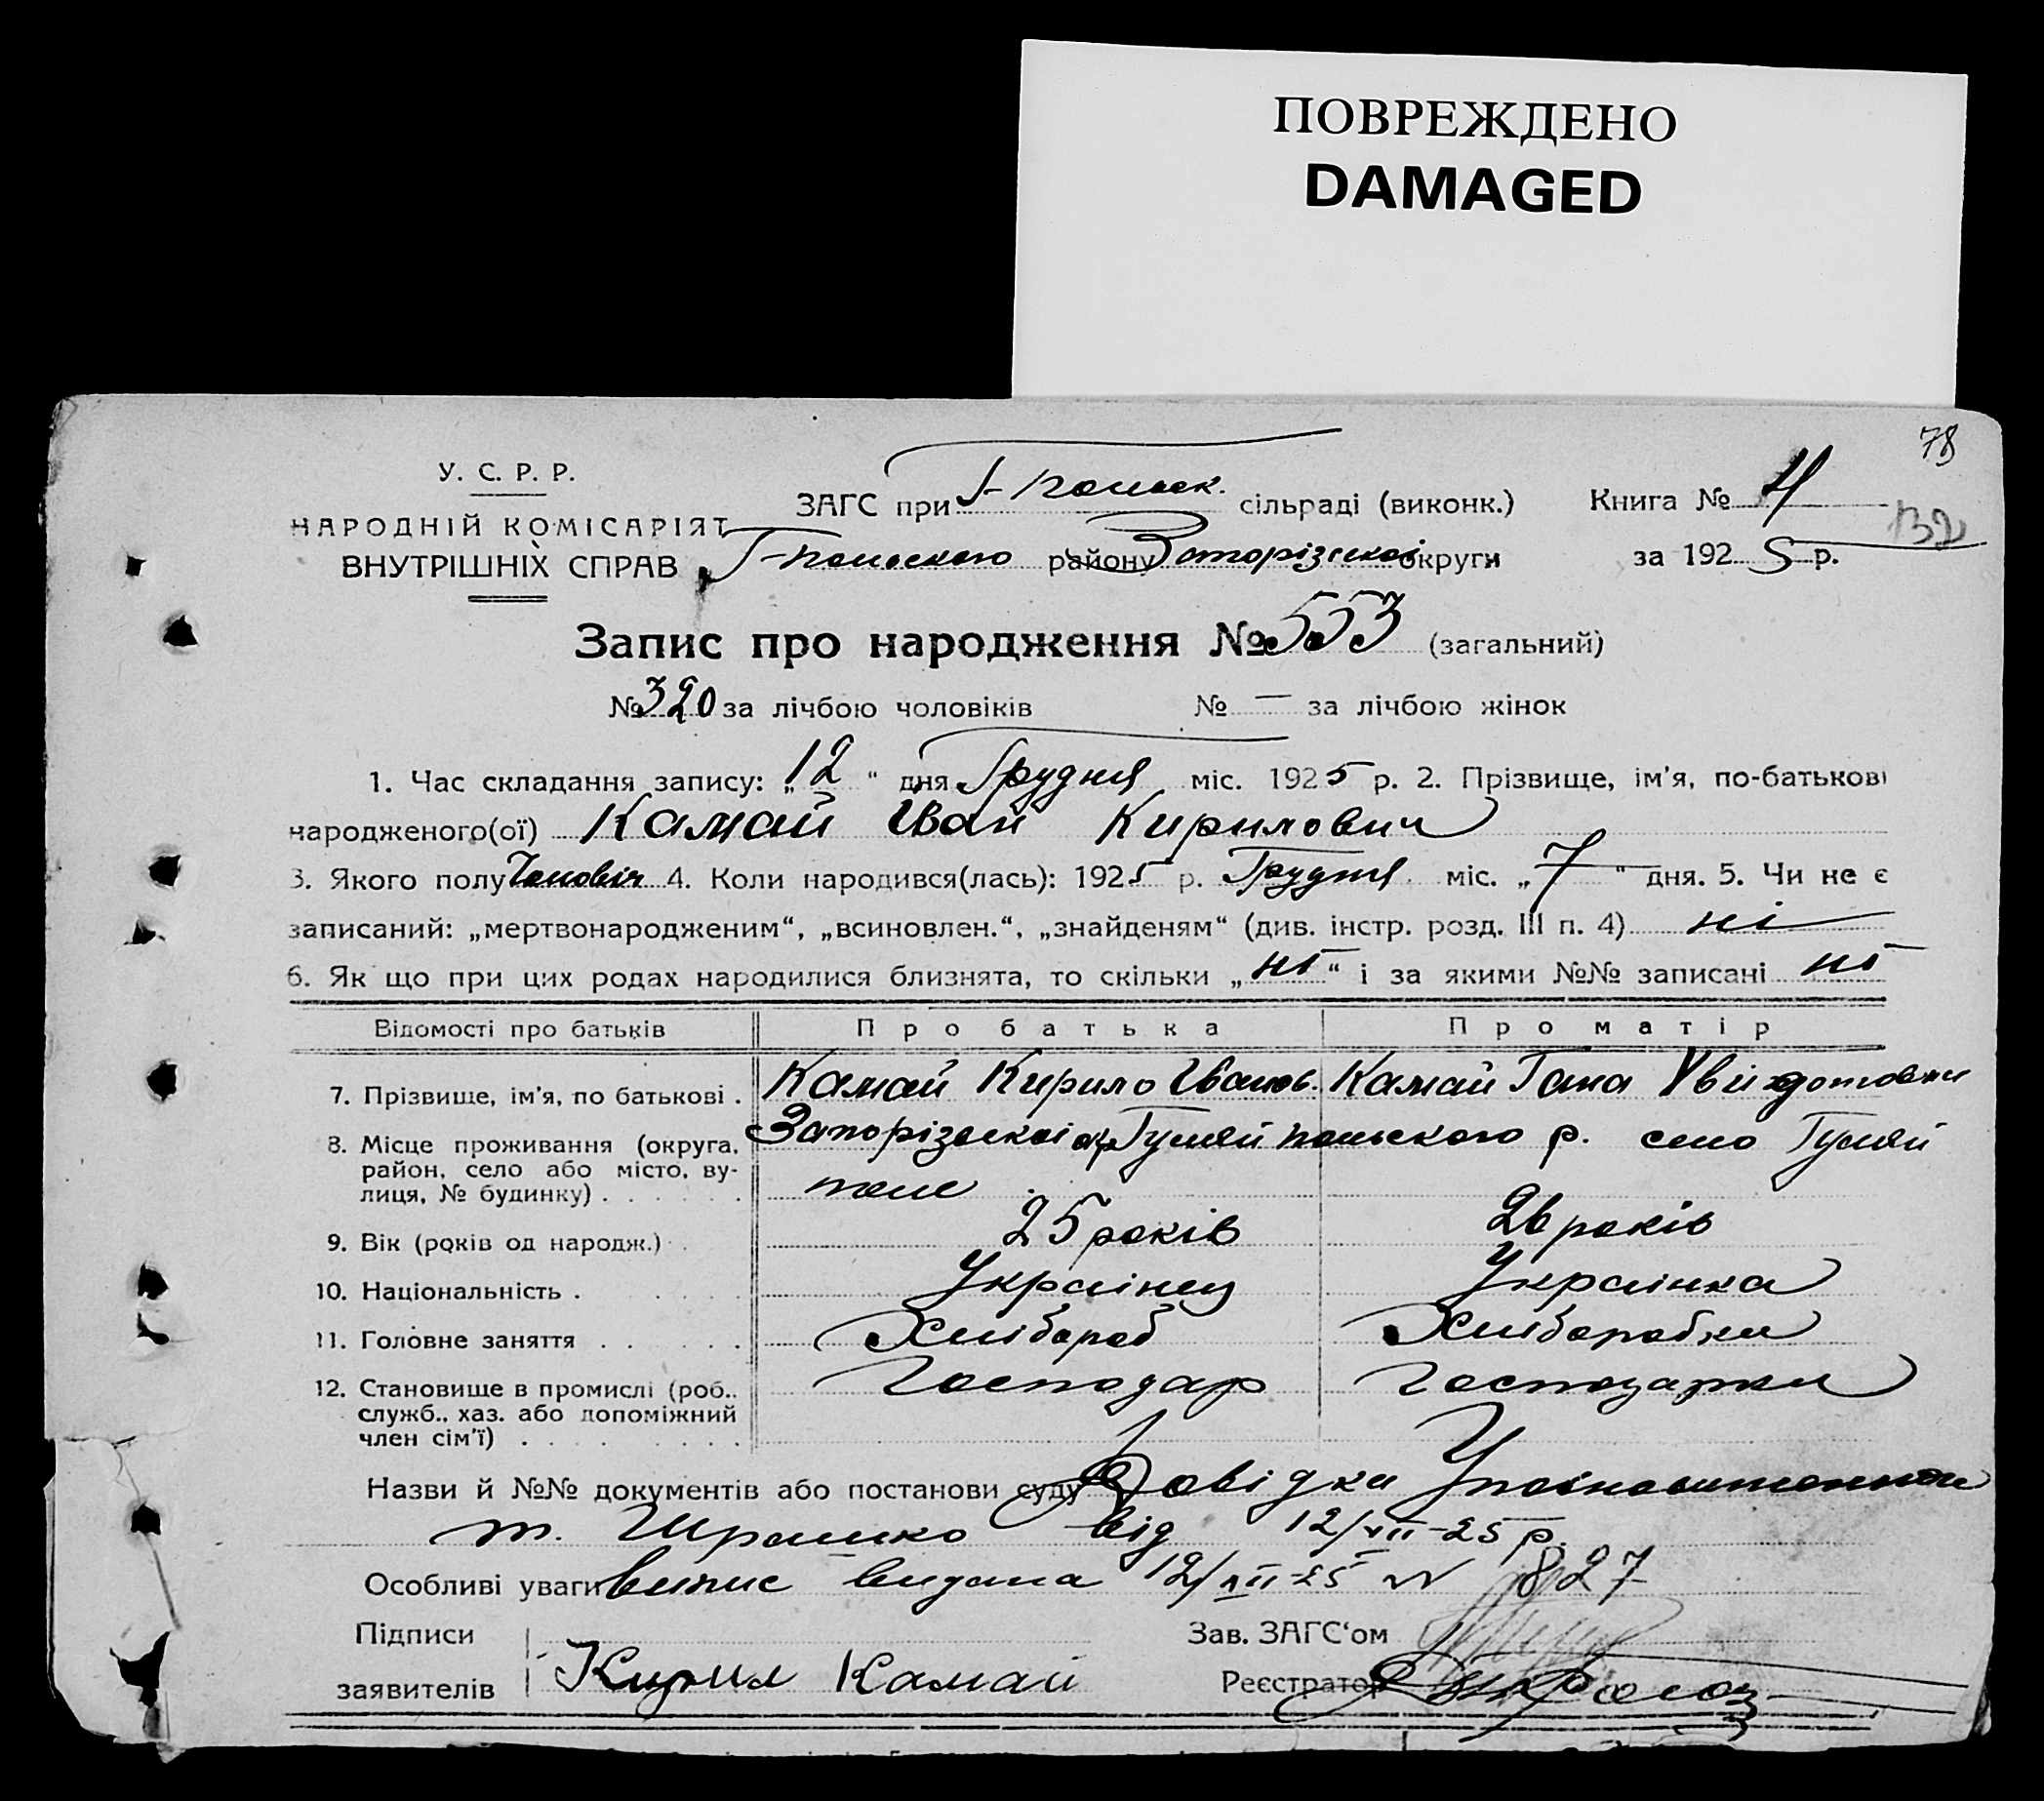 ПОВРЕЖДЕНО
DAMAGED
78
У. С. Р. Р.
НАРОДНІЙ КОМІСАРІЯТ
ВНУТРІШНІХ СПРАВ
ЗАГС при Г-польск. сільраді (виконк.) Книга № 4
132
Г-польского району Запорізської округи за 1925 р.
Запис про народження № 553 (загальний)
№ 320 за лічбою чоловіків № — за лічбою жінок
1. Час складання запису: „12“ дня Грудня міс. 1925 р. 2. Прізвище, ім'я, по-батькові
народженого(ої) Камай Іван Кирилович
3. Якого полу Чоловіч 4. Коли народився(лась): 1925 р. Грудня міс. „7“ дня. 5. Чи не є
записаний: „мертвонародженим“, „всиновлен.“, „знайденям“ (див. інстр. розд. III п. 4) ні
6. Як що при цих родах народилися близнята, то скільки „ні“ і за якими №№ записані ні
Відомості про батьків Про батька Про матір
7. Прізвище, ім'я, по батькові . Камай Кирило Іванов. Камай Гана
8. Місце проживання (округа, район, село або місто, вулиця, № будинку) Запорізської окр Гуляй польского р. село Гуляй
поле
9. Вік (років од народж.) 25 років 26 років
10. Національність . Українец Українка
11. Головне заняття Хлібороб Хліборобка
12. Становище в промислі (роб., служб., хаз. або допоміжний член сім'ї) Господар Господарка
Назви й №№ документів або постанови суду Довідка Уповноваженого
т. від 12/XII-25 р.
Особливі уваги випис видана 12/XII-25 № 827
Підписи Зав. ЗАГС'ом
заявителів Кирил Камай Реєстратор